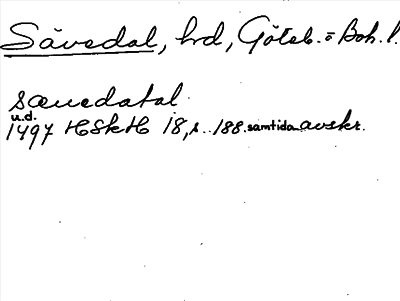 Sävedal, hd, Göteb. o Boh. l.
sæuedatal
u.d.
1497 HSkH 18, s. 188. samtida avskr.